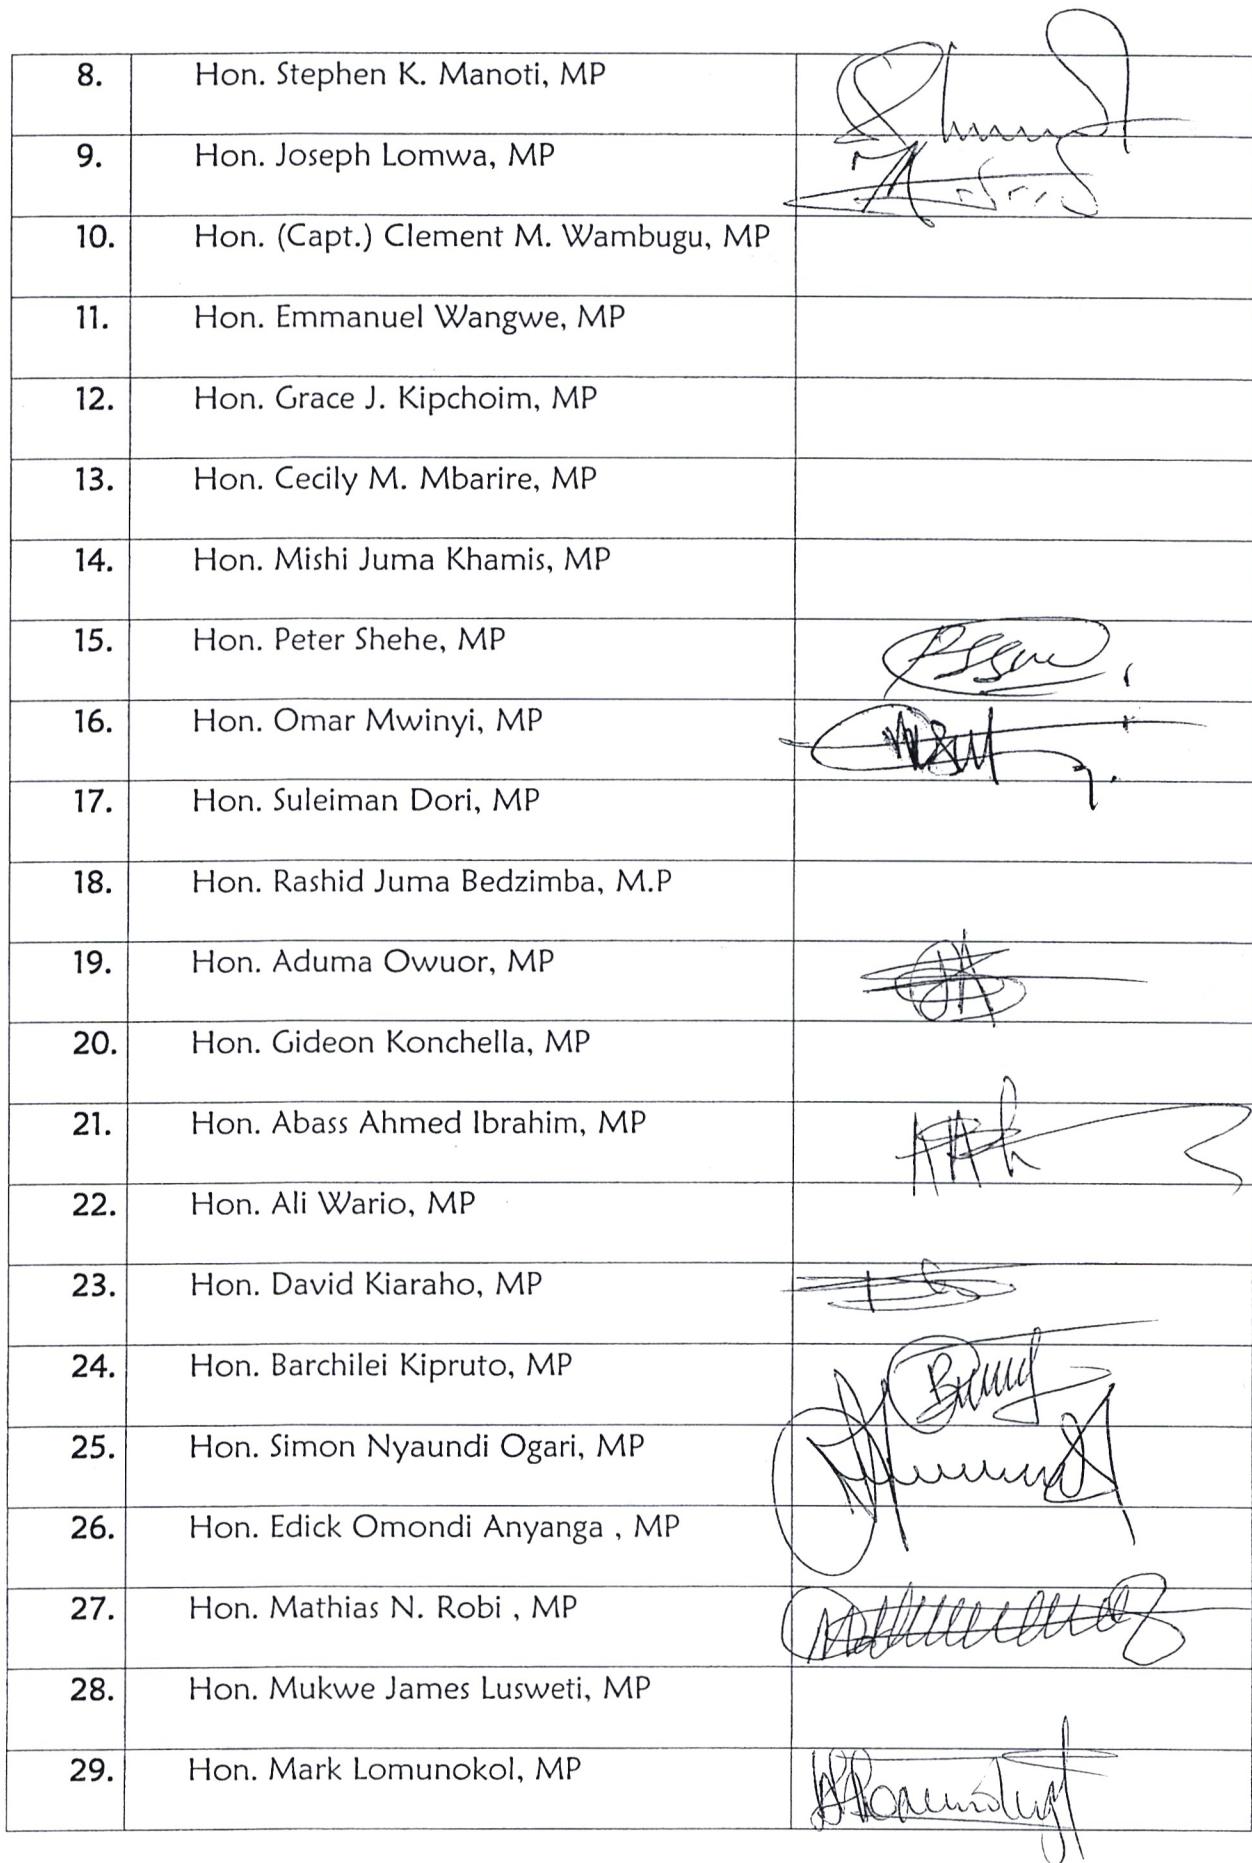 8. Hon. Stephen K. Manoti, MP
9. Hon. Joseph Lomwa, MP
10. Hon. (Capt.) Clement M. Wambugu, MP
11. Hon. Emmanuel Wangwe, MP
12. Hon. Grace J. Kipchoim, MP
13. Hon. Cecily M. Mbarire, MP
14. Hon. Mishi Juma Khamis, MP
15. Hon. Peter Shehe, MP
16. Hon. Omar Mwinyi, MP
17. Hon. Suleiman Dori, MP
18. Hon. Rashid Juma Bedzimba, M.P
19. Hon. Aduma Owuor, MP
20. Hon. Gideon Konchella, MP
21. Hon. Abass Ahmed Ibrahim, MP
22. Hon. Ali Wario, MP
23. Hon. David Kiaraho, MP
24. Hon. Barchilei Kipruto, MP
25. Hon. Simon Nyaundi Ogari, MP
26. Hon. Edick Omondi Anyanga , MP
27. Hon. Mathias N. Robi , MP
28. Hon. Mukwe James Lusweti, MP
29. Hon. Mark Lomunokol, MP